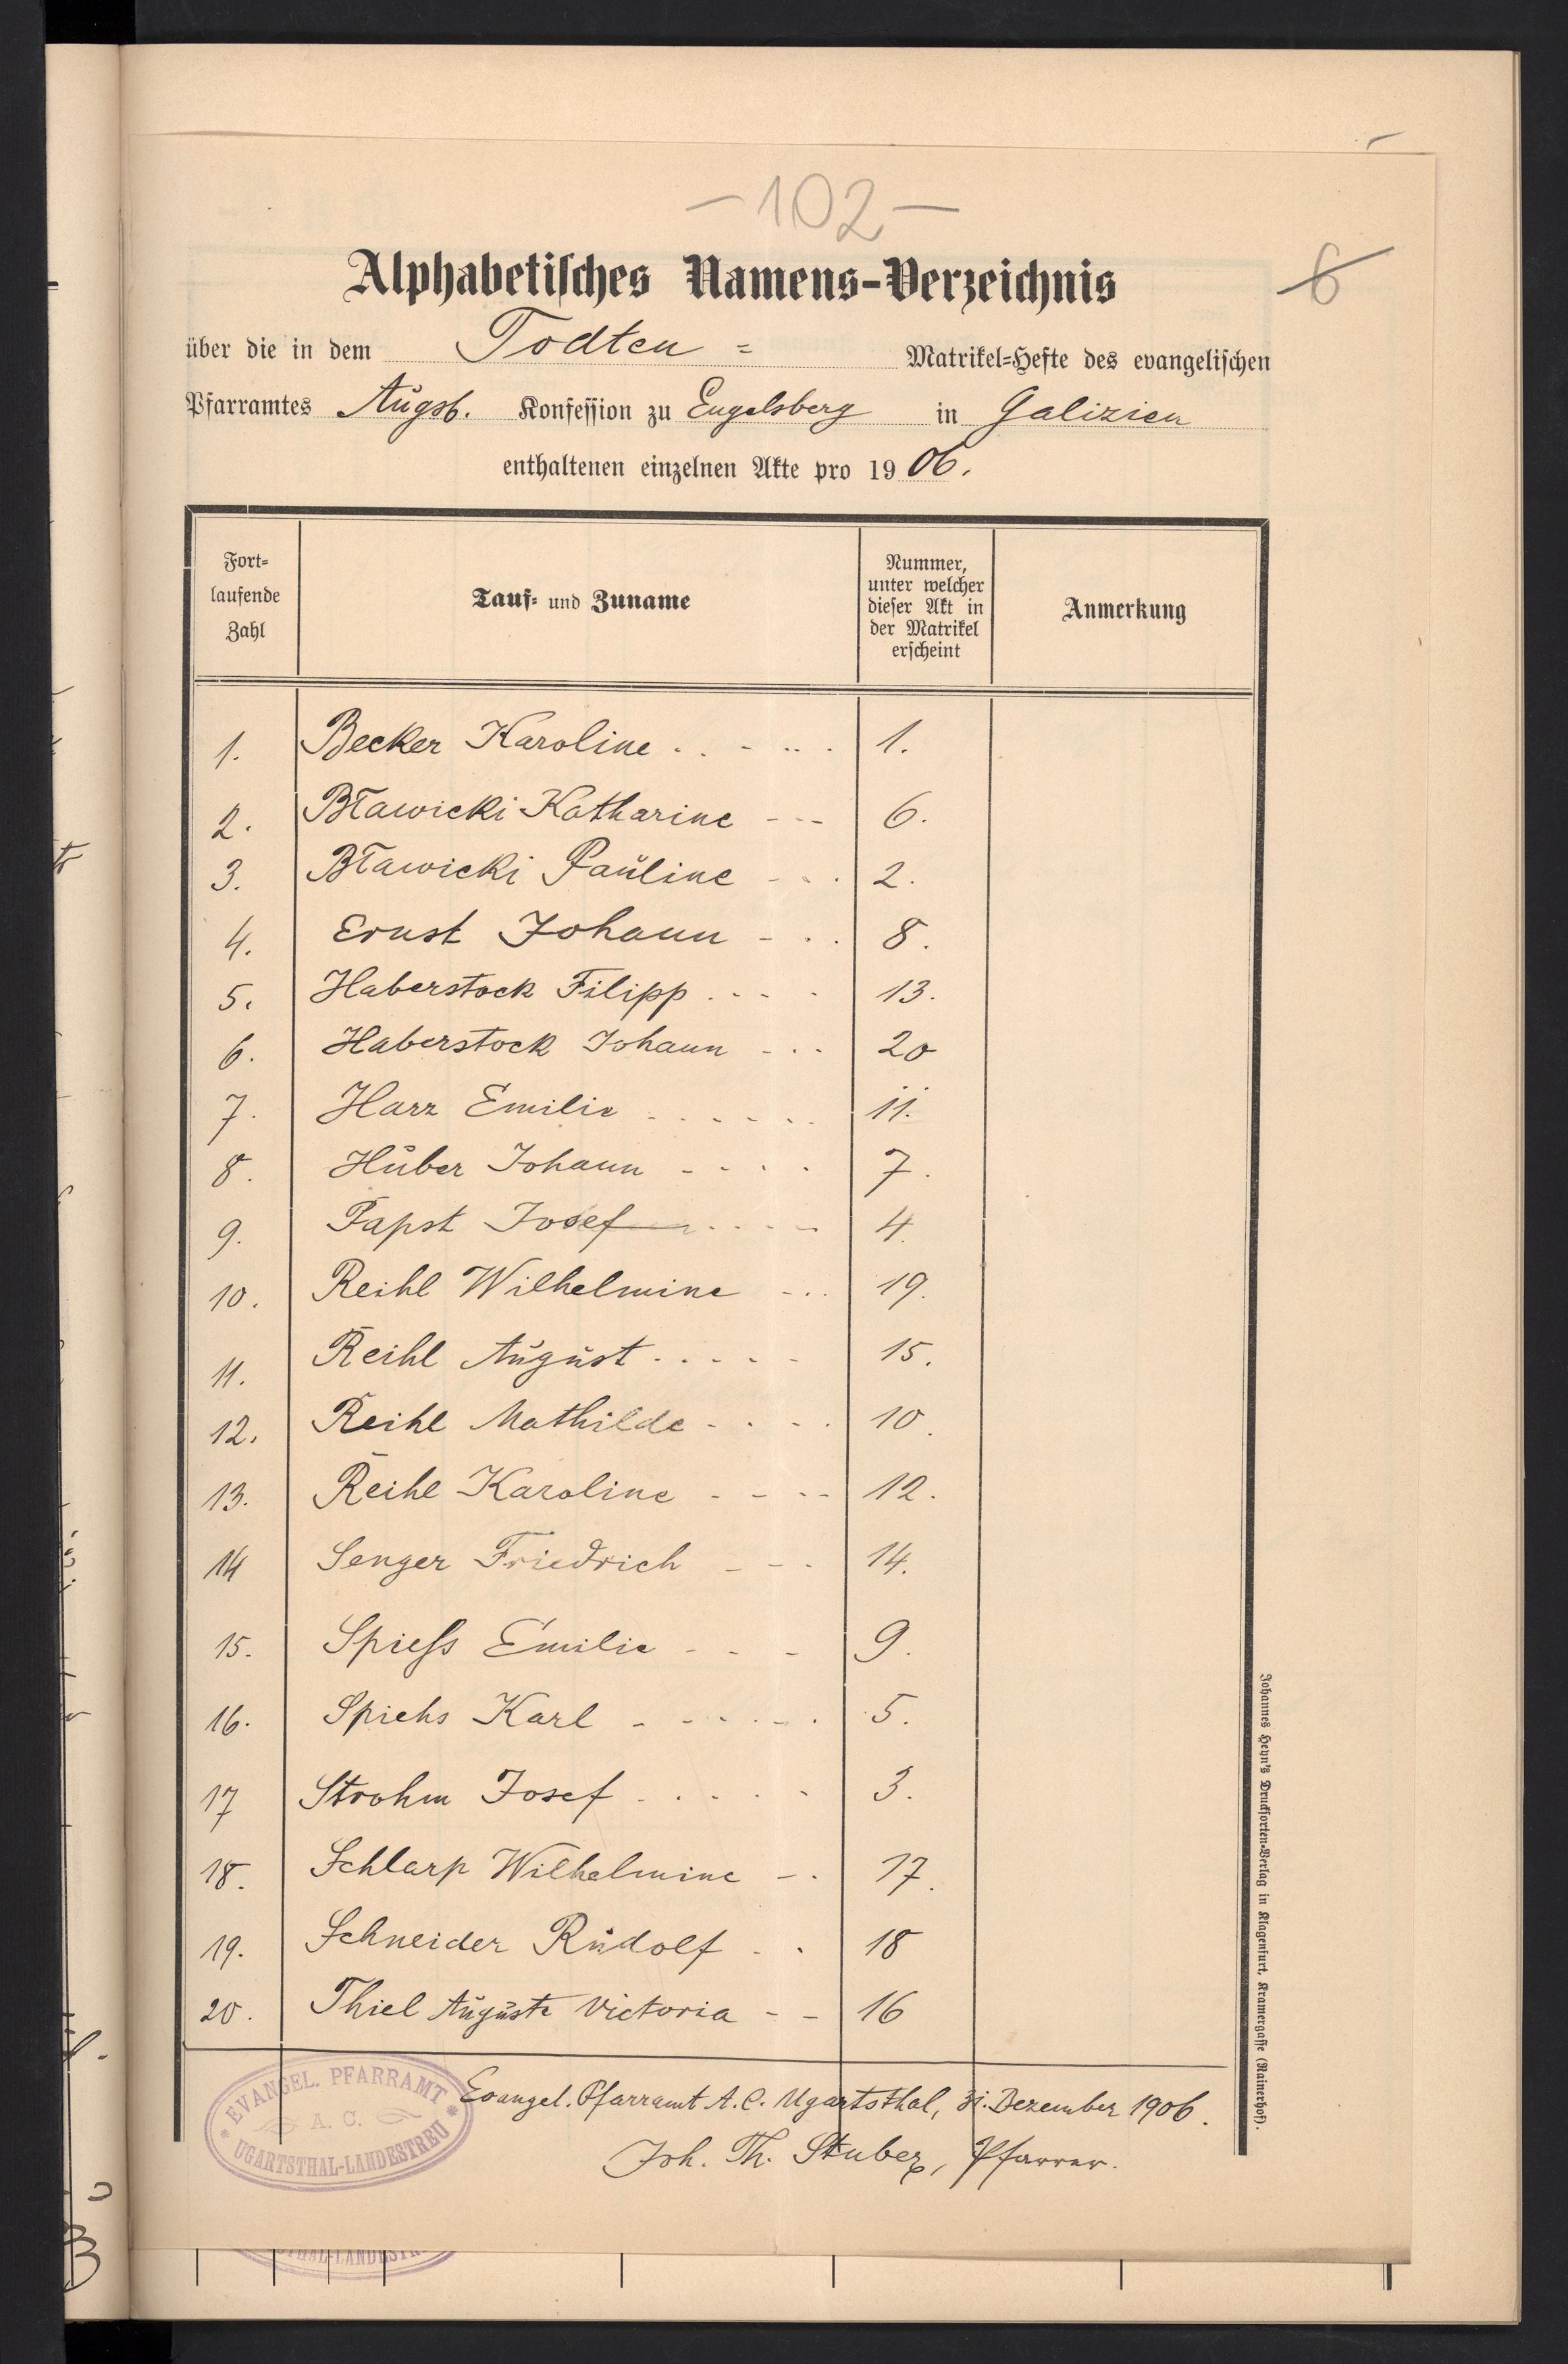 -102-
6
Alphabetisches Namens-Verzeichnis
über die in dem Todten = Matrikel=Hefte des evangelischen
Pfarramtes Augsb. Konfession zu Engelsberg in Galizien
enthaltenen einzelnen Akte pro 1906.
Fort=
laufende
Zahl
Tauf= und Zuname
Nummer,
unter welcher
dieser Akt in
der Matrikel
erscheint
Anmerkung
1. Becker Karoline . . - .. . 1.
2. Bławicki Katharine - - - 6.
3. Bławicki Pauline - . . 2.
4. Ernst Johann - . . 8.
5. Haberstock Filipp . - - . 13.
6. Haberstock Johann - . . 20
7. Harz Emilie . . . - . . 11.
8. Huber Johann - - . . 7.
9. Papst Josef . . - - 4.
10. Reihl Wilhelmine - . . 19.
11. Reihl August . . - . - 15.
12. Reihl Mathilde - . . . 10.
13. Reihl Karoline - - - - 12.
14 Senger Friedrich - - . 14.
15. Spieſs Emilie - - - 9.
16. Spiehs Karl - - . . - . 5.
17 Strohm Josef . . . . . 3.
18. Schlarp Wilhelmine - . 17.
19. Schneider Rudolf - . 18
20. Thiel Auguste Victoria - - 16
Evangel. Pfarramt A. C. Ugartsthal, 31. Dezember 1906.
Joh. Th. Stuber, Pfarrer.
EVANGEL. PFARRAMT
A. C.
* UGARTSTHAL-LANDESTREU *
Johannes Heyn's Drucksorten-Verlag in Klagenfurt, Kramergasse (Rainerhof).